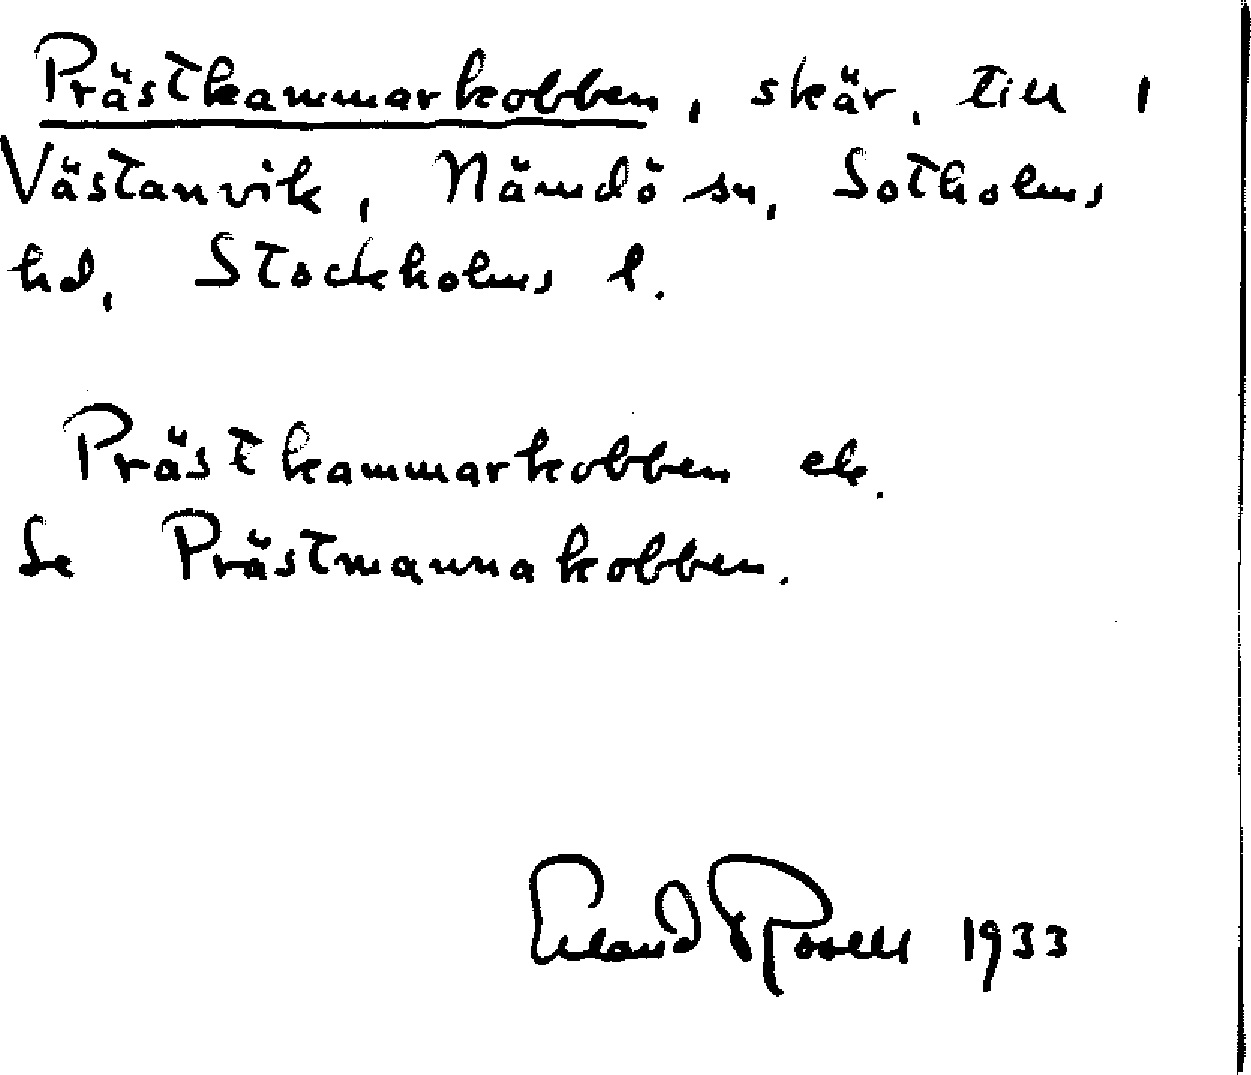 Prästkammarkobben, skär, till 1
Västanvik, Nämdö sn, Sotholms
hd, Stockholms l.
Prästkammarkobben ek.
Se Prästmannakobben.
Erland Rosell 1933